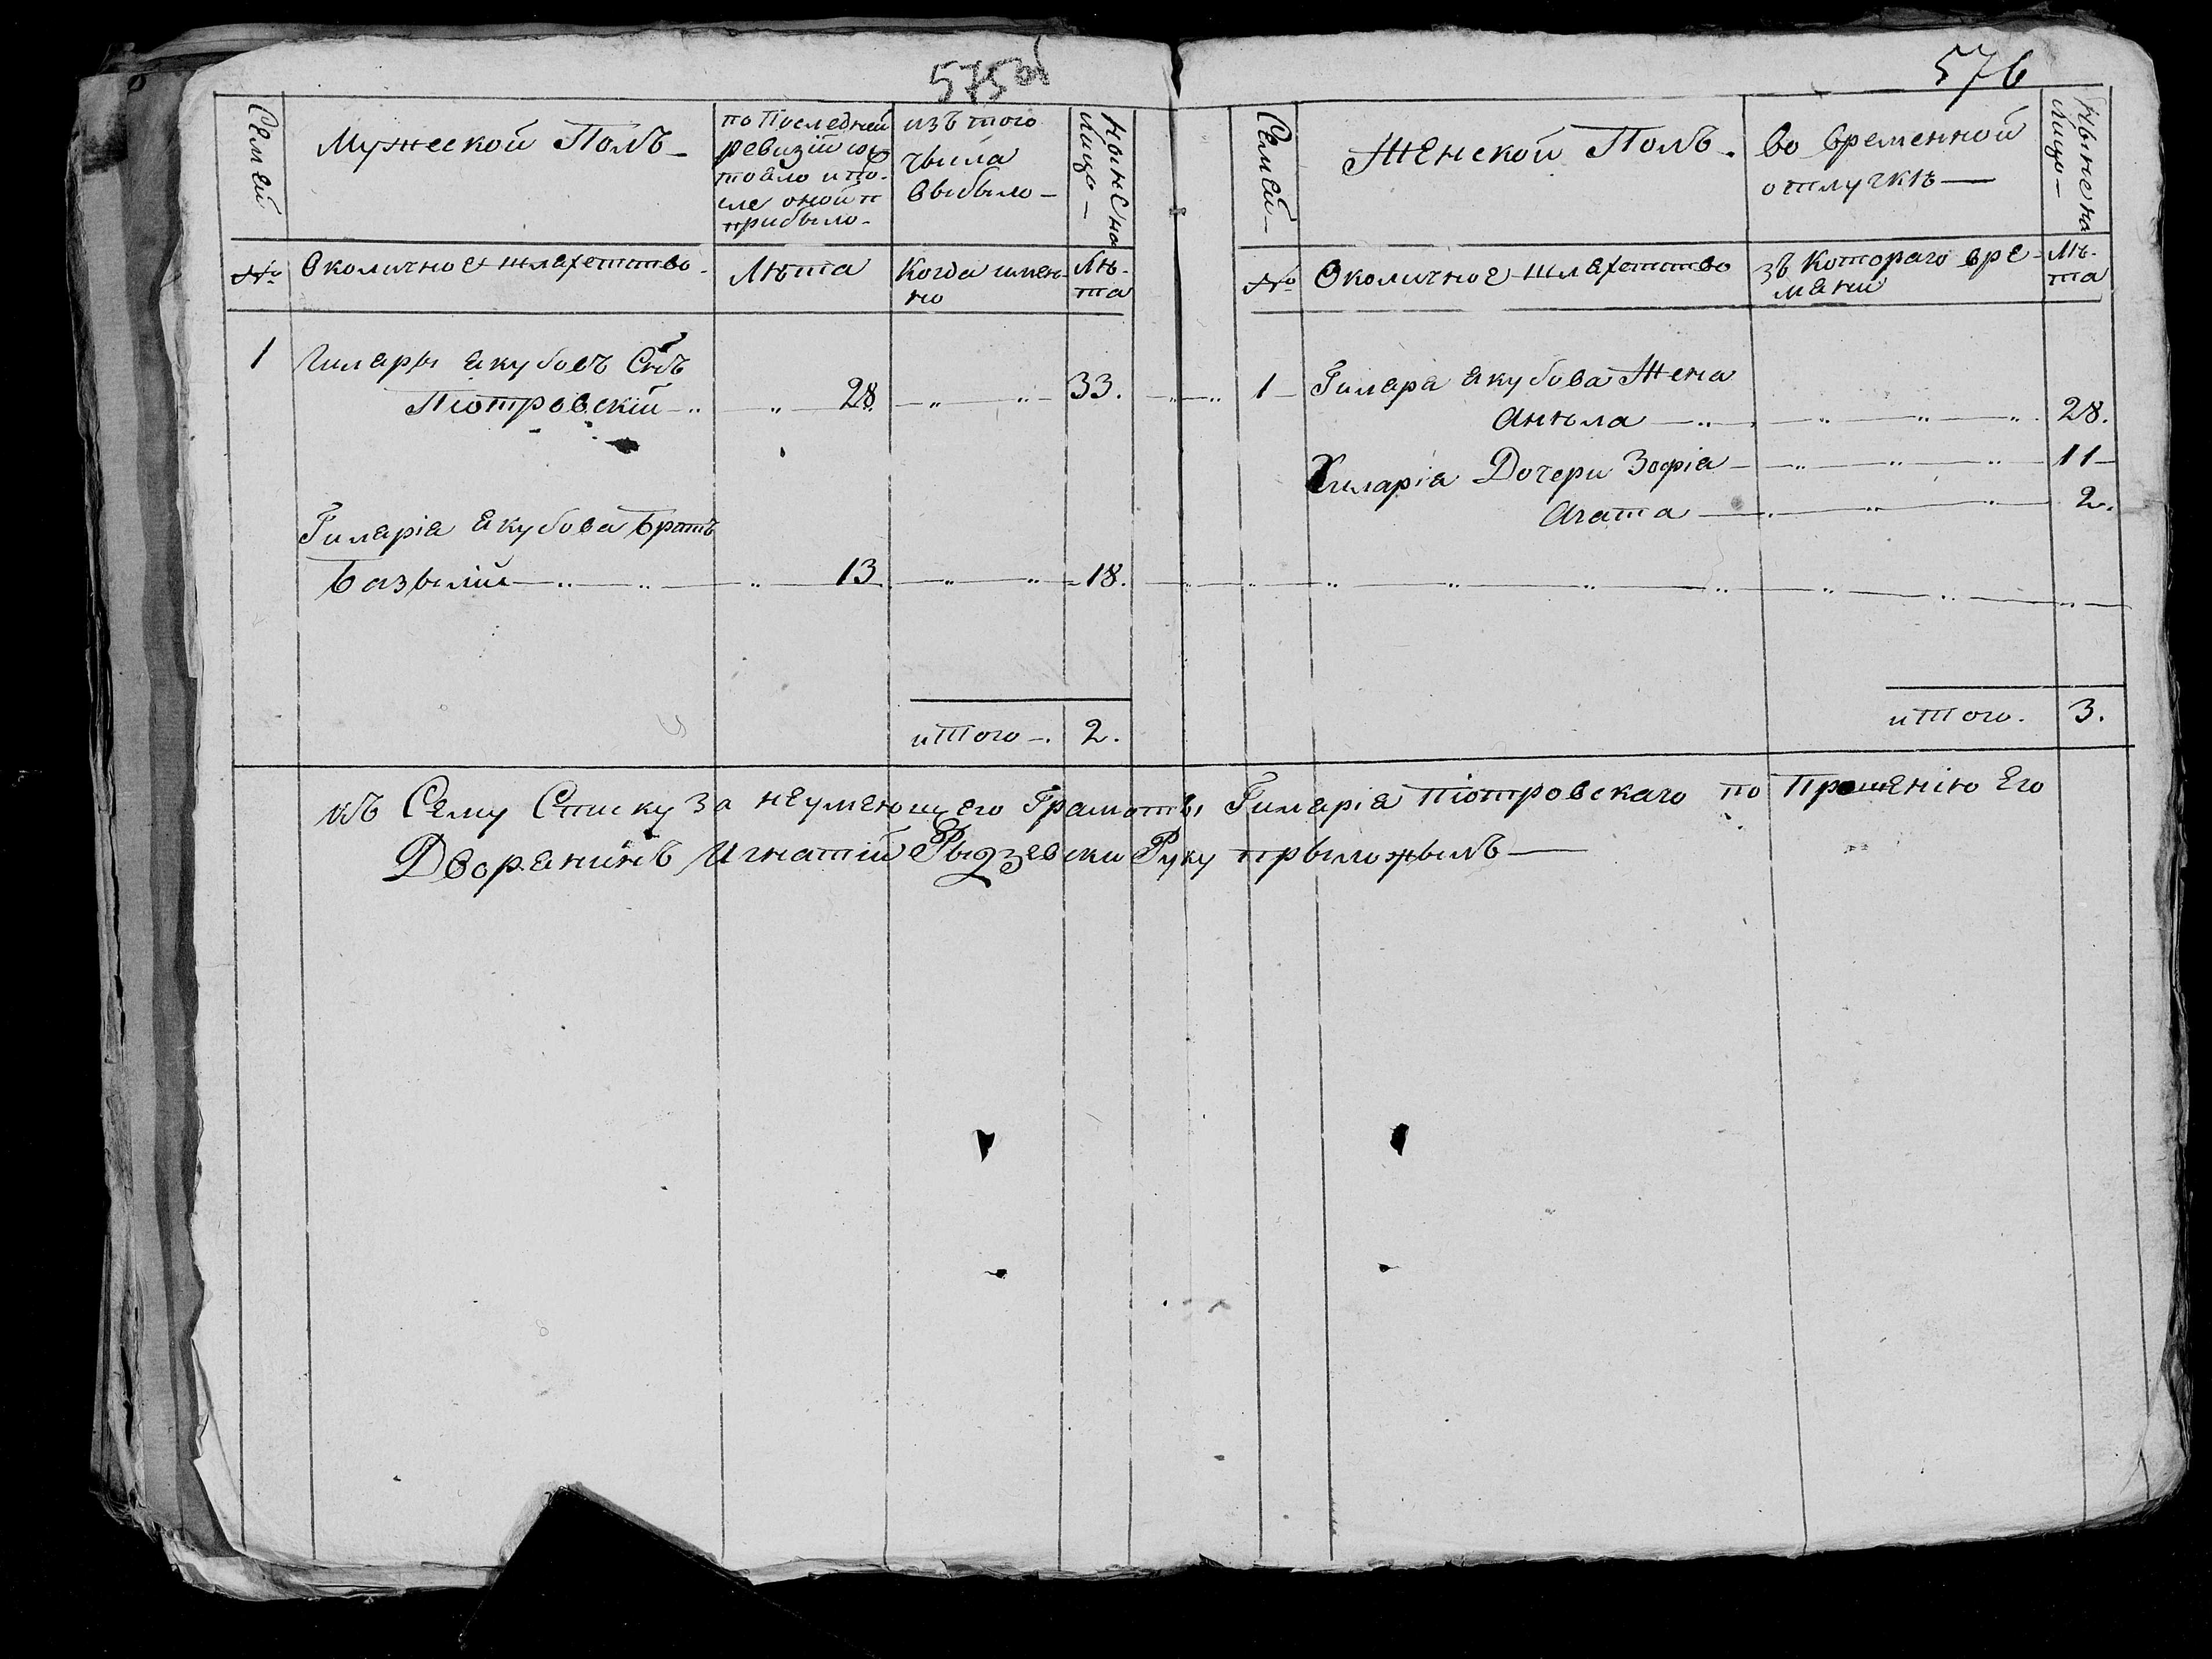 575об
Семей
Мужеской Полъ
по Последней
ревизіи сос-
тояло и по-
сле оной п
прибыло
изъ того
чысла
выбыло
Ныне на
лицо
№
Околичное шляхетство
Лѣта
Когда имен-
но
Лѣ-
та
1
Гиляры Якубовъ Снъ
Піотровскій 28 33.
Гиляріа Якубова братъ
базылій 13 18.
итого 2.
576
Семей
Женской Полъ
во временной
отлучкѣ
Ныне на
лицо
№
Околичное шляхетство
зъ Котораго вре-
мени
Лѣ-
та
1 Гиляра Якубова Жена
Анѣла 28.
Хиляріа Дочери Зофіа 11
Агата 2.
итого. 3.
къ Сему Списку за неумеющего Грамоты Гиляріа Піотровскаго по Прошенію Его
Дворянинъ Игнатій Рыдзевски Руку прыложылъ